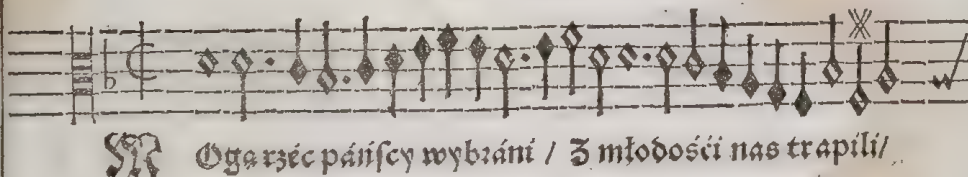 MOga rzéc páńſcy wybráni / Z młodośći nas trapili/